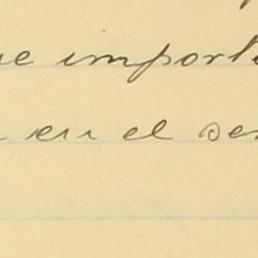 ue import
en el se